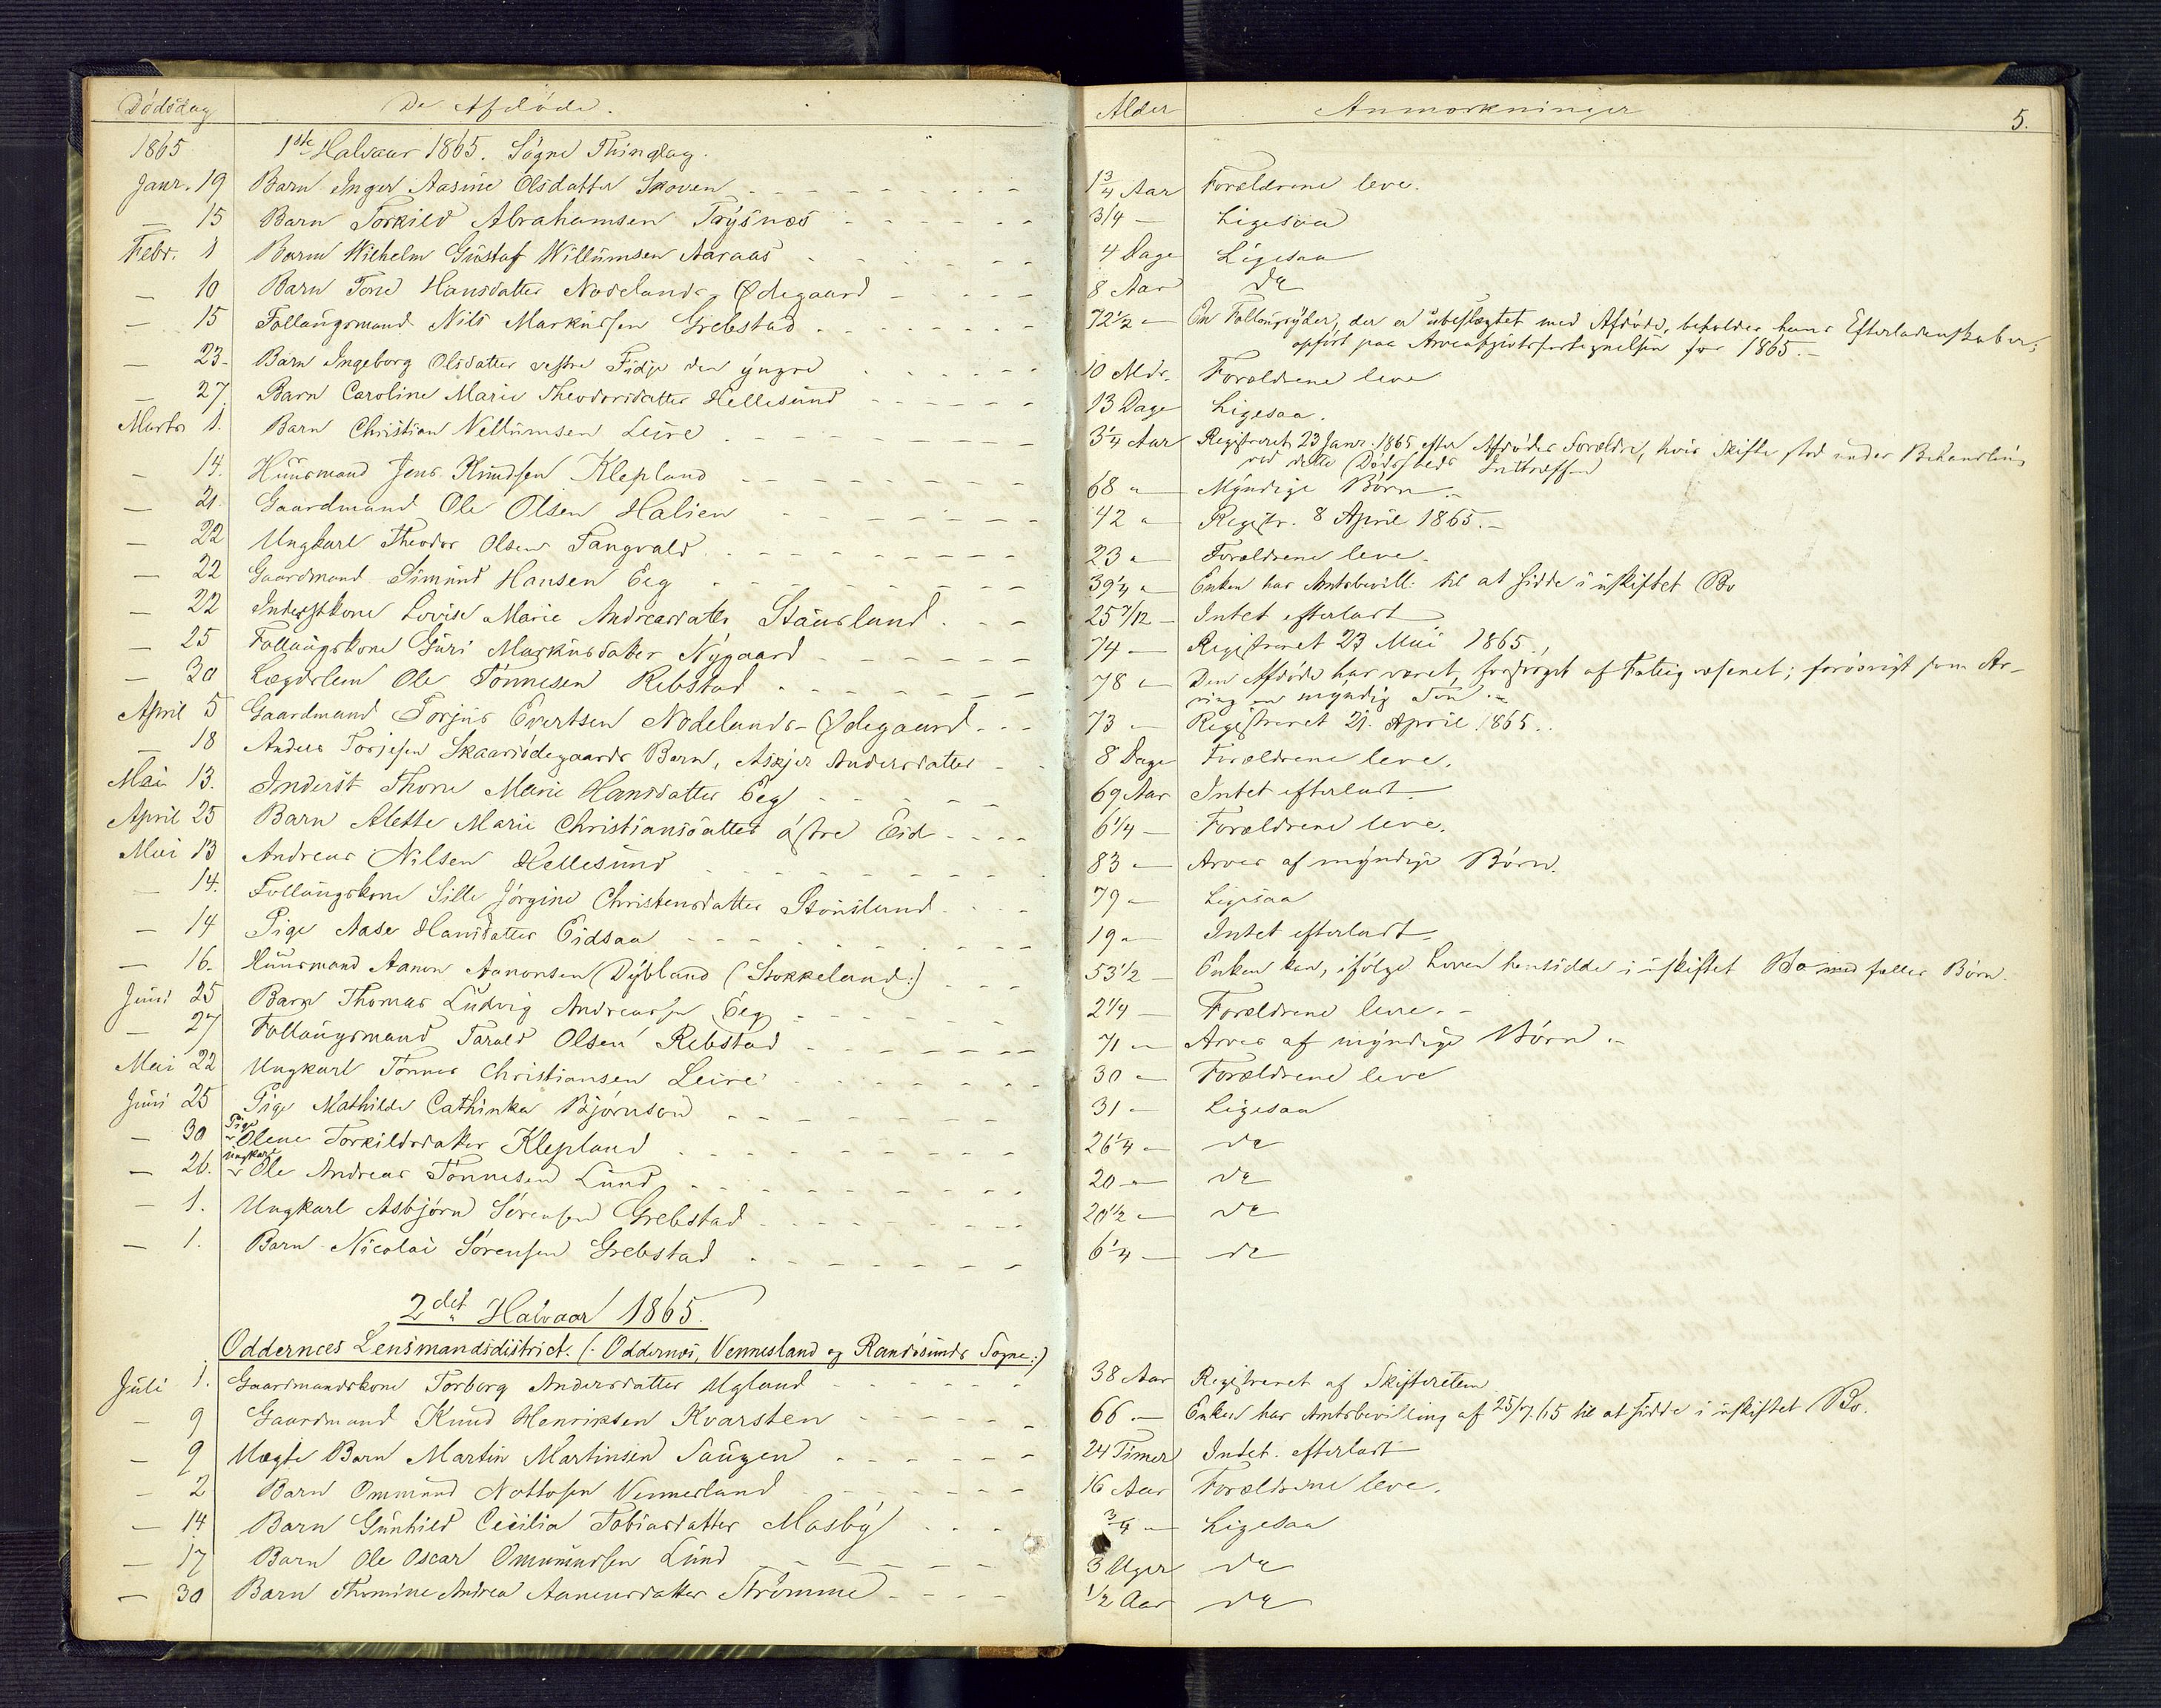 Dödsdag De Afdöde. Alder Anmærkninger 5.
1865 1ste Halvaar 1865. Sögne Thinglag.
Janr. 19 Barn Inger Aasine Olsdatter Skoven 1 3/4 Aar Forældrene leve.
— 15 Barn Torkild Abrahamsen Trÿsnæs 3/4 — Ligesaa
Febr. 1 Barn Wilhelm Gustaf Willumsen Aaraas 4 Dage Ligesaa
— 10 Barn Tone Hansdatter Nodelands Ødegaard 8 Aar do
— 15 Follaugsmand Nils Markussen Grebstad 72 1/2 — En Follaugsyder, der er ubeslægtet med Afdöde, beholder hans Efterladenskaber;
opfört paa Arveafgiftsfortegnelsen for 1865.—
— 23. Barn Ingeborg Olsdatter vestre Fidje den ÿngre 10 Mdr. Forældrene leve
— 27. Barn Caroline Marie Theodorsdatter Hellesund 13 Dage Ligesaa.
Marts 1. Barn Christian Nellumsen Leire 3 1/4 Aar Registreret 23 Janr. 1865 efter Afdödes Forældre, hvis Skifte stod under Behandling
ved dette Dödsfalds Indtræffen
— 14. Huusmand Jens Knudsen Klepland 68 " — Mÿndige Börn.—
— 21. Gaardmand Ole Olsen Halien 42 " Registr. 8 April 1865.—
— 22 Ungkarl Theodor Olsen Tangvald 23 " — Forældrene leve.
— 22 Gaardmand Simund Hansen Eeg 39 1/4 " Enken har Amtsbevill. til at sidde i uskiftet Bo
— 22 Inderstkone Lovise Marie Andreasdatter Staurland 25 7/12 — Intet efterladt
— 25 Follaugskone Guri Markusdatter Nÿgaard 74 — Registreret 23 Mai 1865.
— 30 Lægdslem Ole Tönnesen Rebstad 78 " Den Afdöde har været forsörget af Fattigvæsenet; forövrigt som Ar-
ving en mÿndig Sön.—
April 5 Gaardmand Torjus Evertsen Nodelands-Ødegaard 73 — Registreret 21. April 1865.
— 18 Anders Torjesen Skaarsödegaards Barn, Askjer Andersdatter 8 Dage Forældrene leve.
Mai 13. Inderst Thone Marie Hansdatter Eeg 69 Aar Intet efterladt
April 25 Barn Alette Marie Christiansdatter östre Eid 6 1/4 — Forældrene leve.
Mai 13 Andreas Nilsen Hellesund 83 — Arves af mÿndige Börn.
— 14. Follaugskone Sille Jörgine Christensdatter 79 — Ligesaa
— 14 Pige Aase Hansdatter Eidsaa 19 " Intet efterladt.
— 16. Huusmand Aanon Aanonsen Dÿbland (Stokkeland:) 53 1/2 — Enken kan, ifölge Loven hensidde i uskiftet Bo med fælles Börn.
Juni 25 Barn Thomas Ludvig Andreassen Eeg 2 1/4 — Forældrene leve.—
— 27 Follaugsmand Tarald Olsen Rebstad 71 — Arves af mÿndige Börn.—
Mai 22 Ungkarl Tönnes Christiansen Leire 30 — Forældrene leve
Juni 25 Pige Mathilde Cathinka Björnsen 31 — Ligesaa
— 30 Pige Olene Torkildsdatter Klepland 26 1/4 " do
— 26. Ungkarl Ole Andreas Tönnesen Lund 20 — do
— 1. Ungkarl Asbjörn Sörensen Grebstad 20 1/2 — do
— 1. Barn Nicolai Sörensen Grebstad 6 1/4 — do
2det Halvaar 1865.
Oddernæs Lensmandsdistrict. (: Oddernæs, Vennesland og Randösunds Sogne:)
Juli 1. Gaardmandskone Torborg Andersdatter Ugland 38 Aar Registreret af Skifteretten
— 9 Gaardmand Knud Henriksen Kvarsten 66 — Enken har Amtsbevilling af 25/7 65 til at sidde i uskiftet Bo.
— 9 Uægte Barn Martin Martinsen Saugen 24 Timer Intet efterladt
— 2 Barn Ommund Nottosen Vennesland 16 Aar Forældrene leve.
— 14 Barn Gunhild Cecilia Tobiasdatter Mosbÿ 3/4 — Ligesaa
— 17 Barn Ole Oscar Ommundsen Lund 3 Uger do
— 30 Barn Thomine Andrea Aanensdatter Strömme 1/2 Aar do